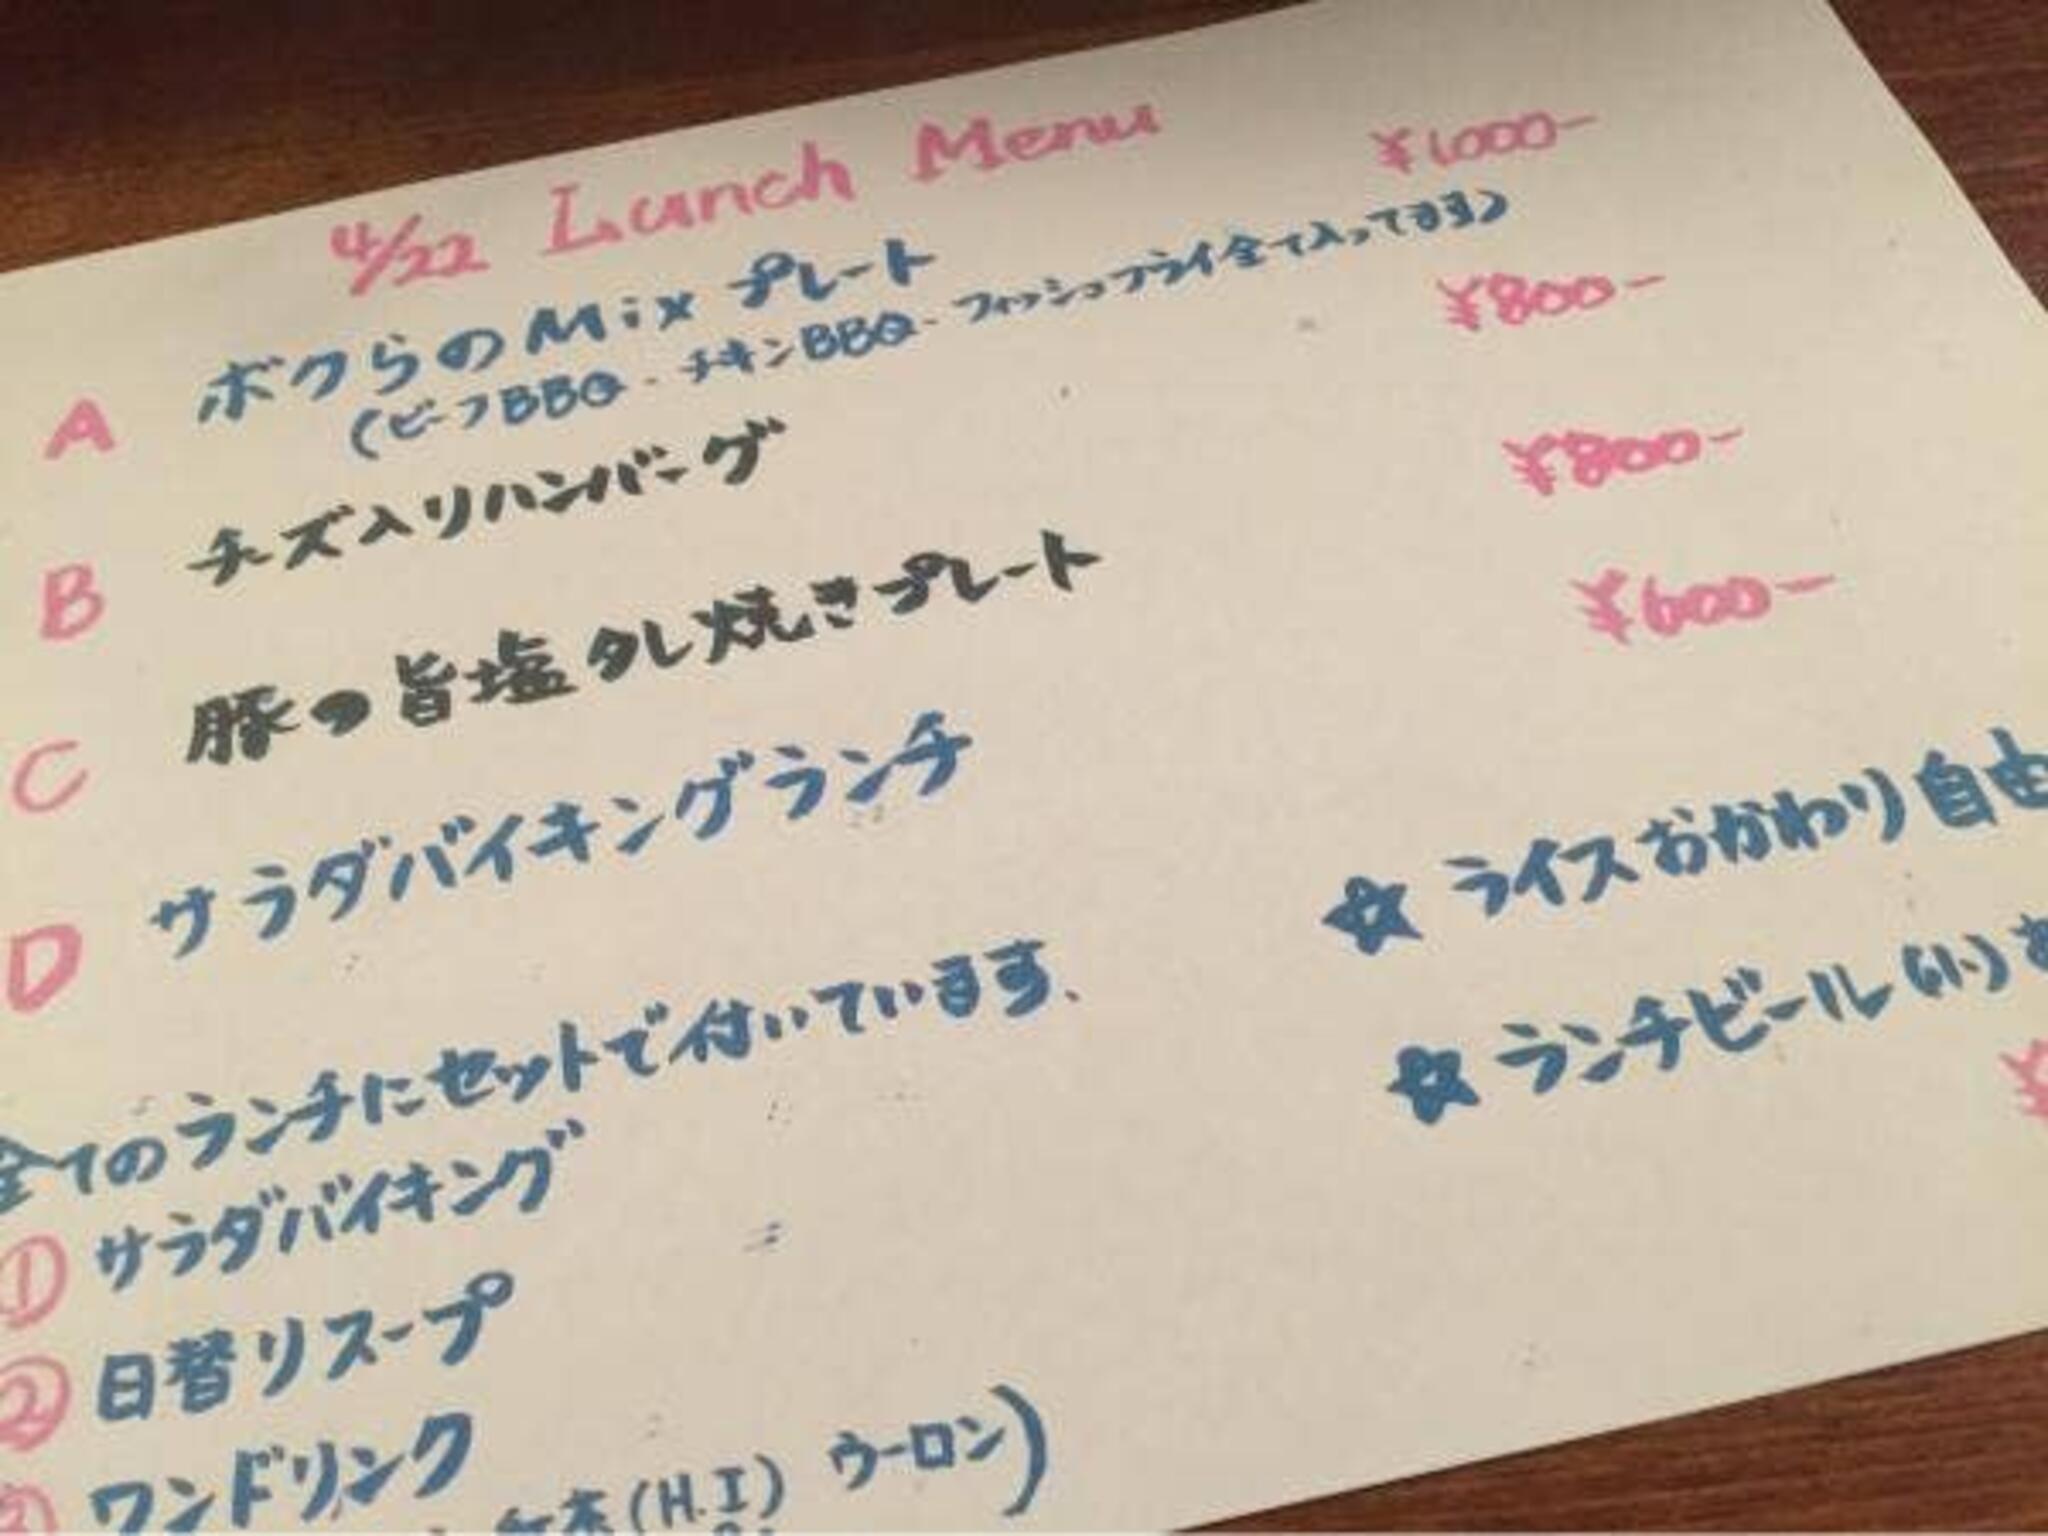 4/22 Lunch Menu
A ボクらのMixプレート ¥1,000-
(ビーフBBQ・チキンBBQ・フィッシュフライ全て入ってます)
B チーズ入りハンバーグ ¥800-
C 豚の旨塩タレ焼きプレート ¥800-
D サラダバイキングランチ ¥600-
全てのランチにセットで付いています、
① サラダバイキング
② 日替りスープ
③ ワンドリンク
(H.I) ウーロン)
☆ ライスおかわり自由
☆ ランチビール(小)
¥